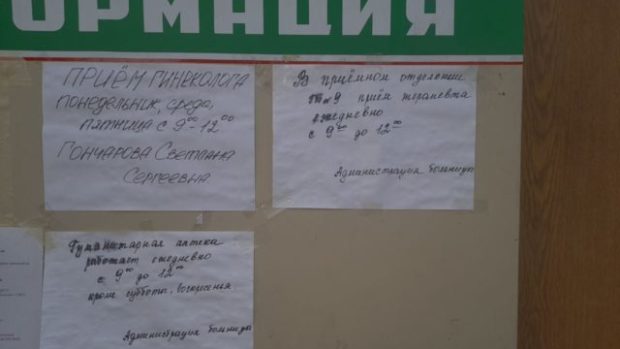 ОРМАЦИЯ
ПРИЁМ ГИНЕКОЛОГА
ПОНЕДЕЛЬНИК, среда,
ПЯТНИЦА с 9⁰⁰-12⁰⁰
ГОНЧАРОВА СВЕТЛАНА
СЕРГЕЕВНА
В приёмном отделении
приём терапевта
ежедневно
с 9⁰⁰ до 12⁰⁰
Администрация больницы
Гуманитарная аптека
работает ежедневно
с 9⁰⁰ до 12⁰⁰
кроме субботы, воскресенья
Администрация больницы